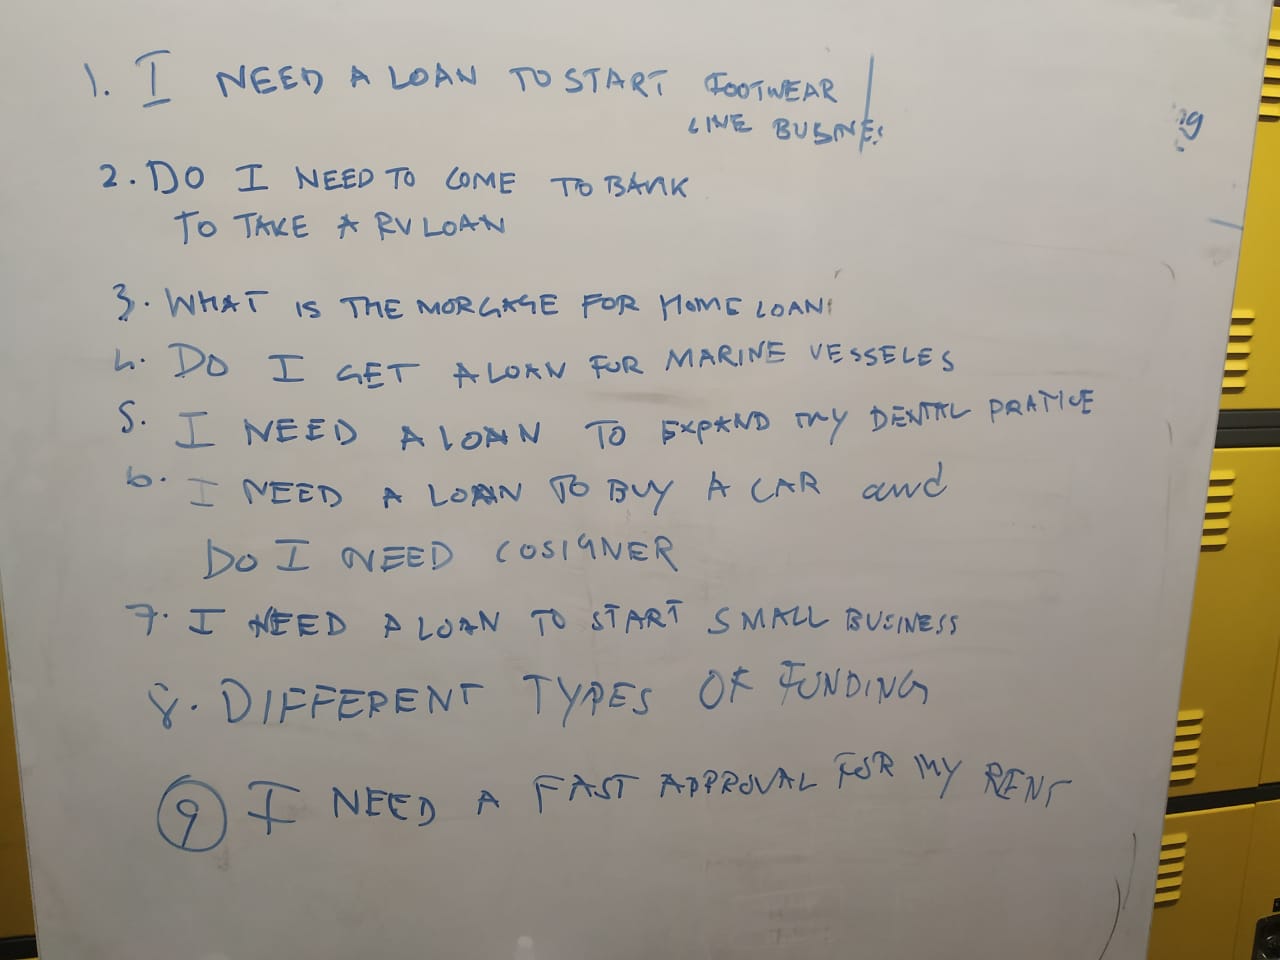 1. I NEED A LOAN TO START FOOTWEAR
LINE BUSINES
2. DO I NEED TO COME TO BANK
TO TAKE A RV LOAN
3. WHAT IS THE MORGAGE FOR HOME LOAN
4. DO I GET A LOAN FOR MARINE VESSELES
5. I NEED A LOAN TO EXPAND MY DENTAL PRATICE
6. I NEED A LOAN TO BUY A CAR and
DO I NEED COSIGNER
7. I NEED A LOAN TO START SMALL BUSINESS
8. DIFFERENT TYPES OF FUNDING
9 I NEED A FAST APPROVAL FOR MY RENT